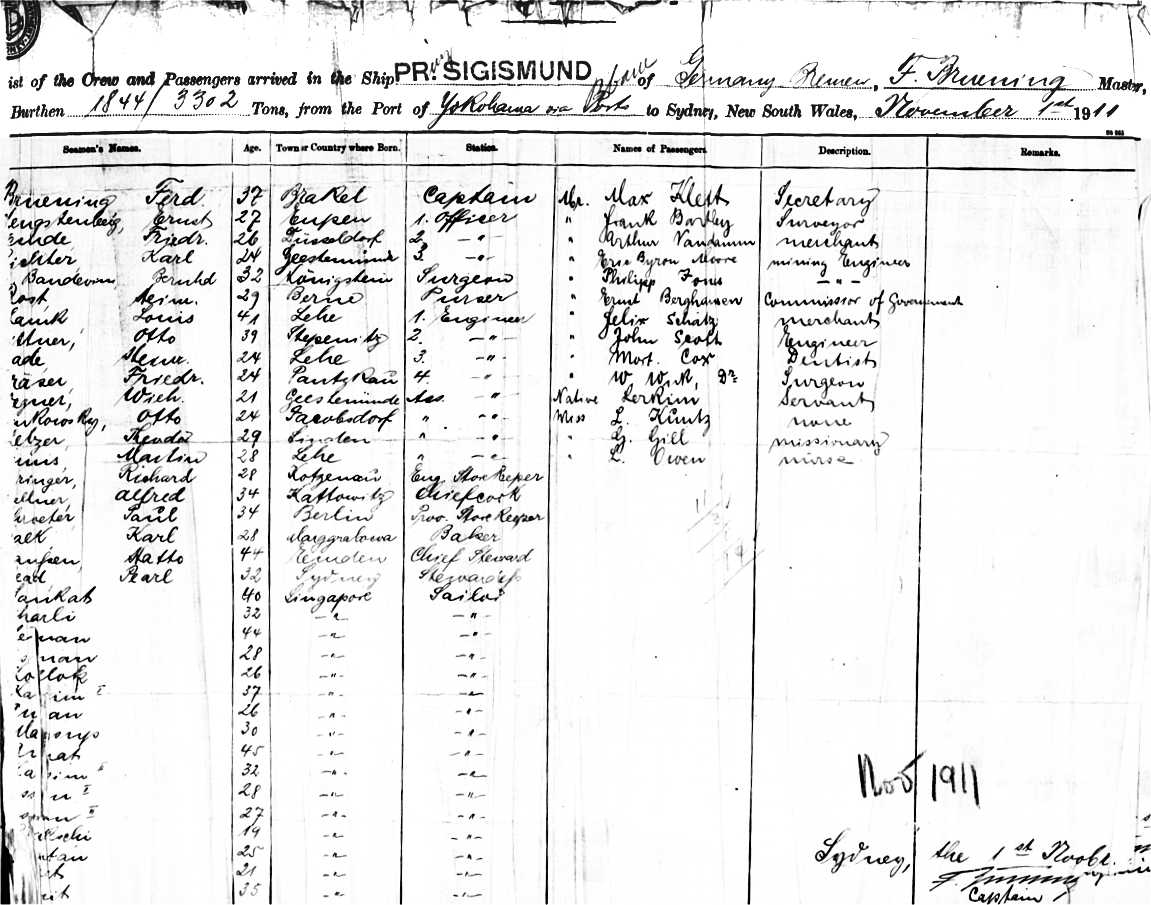 ist of the Crew and Passengers arrived in the Ship PR. SIGISMUND of Germany Bremen, F. Bruening Master,
Burthen 1844/3302 Tons, from the Port of Yokohama via Ports to Sydney, New South Wales, November 1st 1911
Seamen's Names. Age. Town or Country where Born. Station. Names of Passengers. Description. Remarks.
Bruening Ferd. 37 Brakel Captain Mr. Max Klett Secretary
engstenberg, Ernst 27 Eupen 1. Officer " Frank Bartley Surveyor
Friedr. 26 Düsseldorf 2. -"- " Arthur merchant
ichter Karl 24 Geestemünde 3. -"- " Eric Byron Moore mining Engineer
Bernhd 32 Königstein Surgeon " Philipp -"-
ost Heinr. 29 Berne Purser " Ernst Berghausen Commissior of Government
Louis 41 Lehe 1. Engineer " Felix Schatz merchant
Otto 39 Stepenitz 2. -"- " John Scott Engineer
ade, 24 Lehe 3. -"- " Mort. Cox Dentist
räser, Friedr. 24 4. -"- " W Wick, Dr Surgeon
egner, Wilh. 21 Geestemünde Ass. -"- Native Lerkim Servant
nkowsky, Otto 24 Jacobsdorf " -"- Miss L. Kuntz none
elzer, Theodor 29 Linden " -"- " G. Gill missionary
Martin 28 Lehe " -"- " L. Owen nurse
ringer, Richard 28 Kotzenau Eng. Storekeeper
ellner, Alfred 34 Kattowitz Chiefcook
hroeter, Paul 34 Berlin Prov. Storekeeper
alk Karl 28 Marggrabowa Baker
anssen, Hatto 44 Emden Chief Steward
ead Pearl 32 Sydney Stewardess
ankat 40 Singapore Sailor
harli 32 -"- -"-
enan 44 -"- -"-
snan 28 -"- -"-
ollok 26 -"- -"-
Kasim I 37 -"- -"-
nan 26 -"- -"-
30 -"- -"-
at 45 -"- -"-
asim II 32 -"- -"-
28 -"- -"-
II 27 -"- -"-
19 -"- -"-
tan 25 -"- -"-
21 -"- -"-
it 35 -"- -"-
Nov 1911
Sydney, the 1st Novbr.
Captain